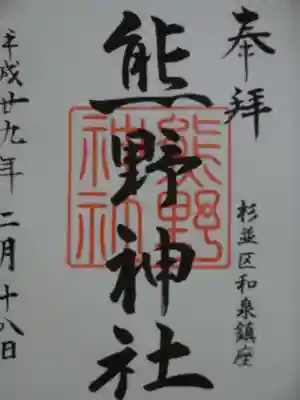 奉拝
杉並区和泉鎮座
熊野神社
熊野
神社
平成廿九年二月十八日